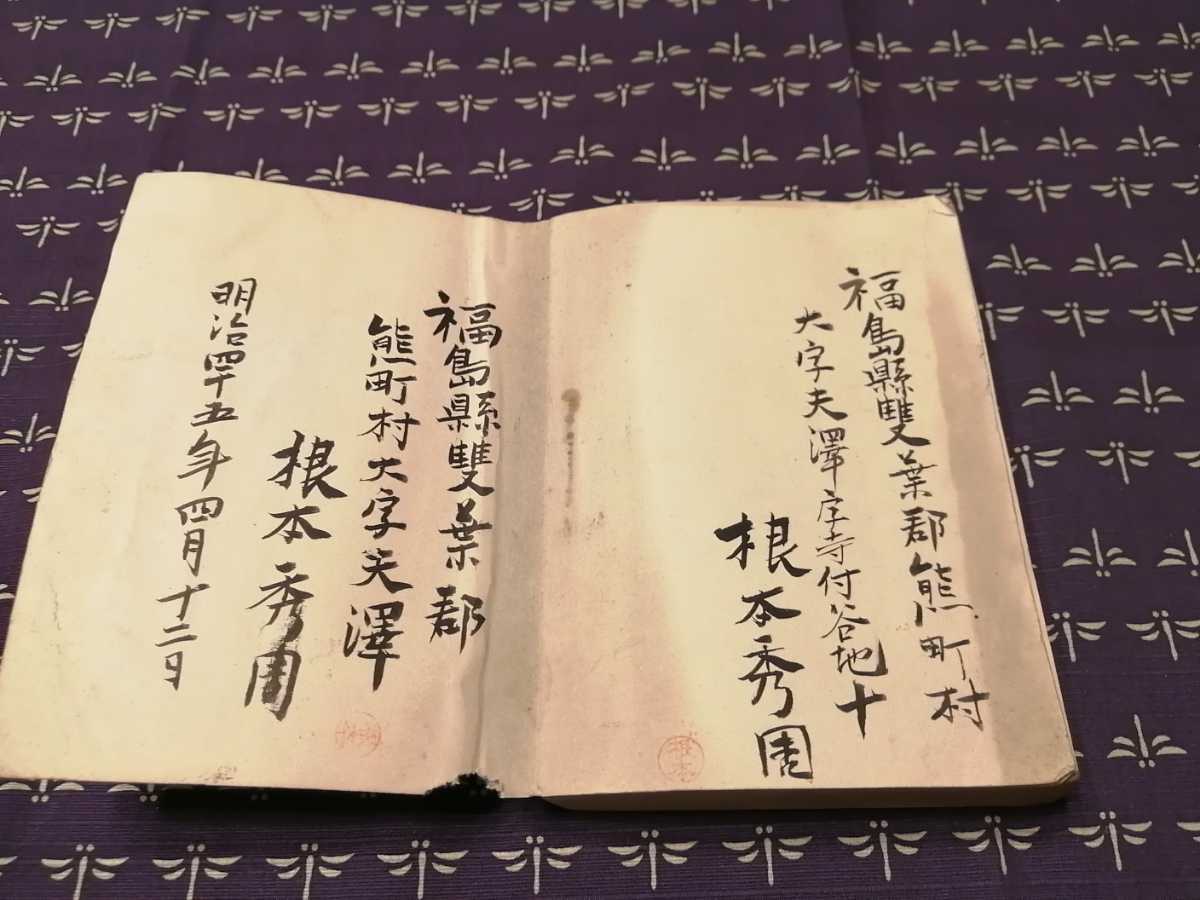 福島縣雙葉郡熊町村
大字夫澤字寺付谷地十
根本秀圍
根本
福島縣雙葉郡
熊町村大字夫澤
根本秀圍
明治四十五年四月十二日